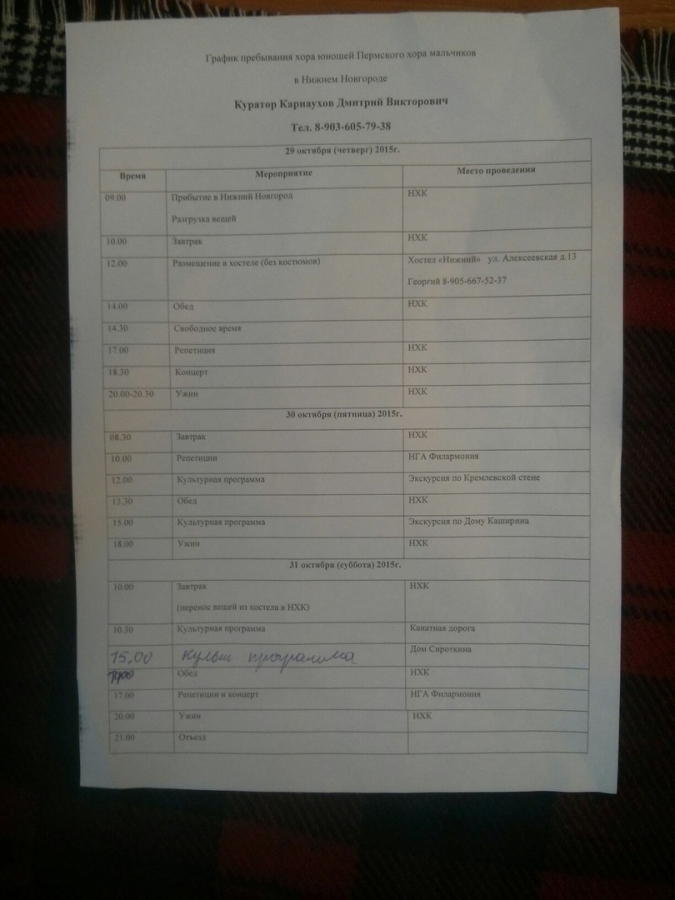 График пребывания хора юношей Пермского хора мальчиков
в Нижнем Новгороде
Куратор Карнаухов Дмитрий Викторович
Тел. 8-903-605-79-38
29 октября (четверг) 2015г.
Время Мероприятие Место проведения
09.00 Прибытие в Нижний Новгород НХК
Разгрузка вещей
10.00 Завтрак НХК
12.00 Размещение в хостеле (без костюмов) Хостел «Нижний» ул. Алексеевская д.13
Георгий 8-905-667-52-37
14.00 Обед НХК
14.30 Свободное время
17.00 Репетиция НХК
18.30 Концерт НХК
20.00-20.30 Ужин НХК
30 октября (пятница) 2015г.
08.30 Завтрак НХК
10.00 Репетиции НГА Филармония
12.00 Культурная программа Экскурсия по Кремлевской стене
13.30 Обед НХК
15.00 Культурная программа Экскурсия по Дому Каширина
18.00 Ужин НХК
31 октября (суббота) 2015г.
10.00 Завтрак НХК
(перенос вещей из хостела в НХК)
10.30 Культурная программа Канатная дорога
15.00 Культ программа Дом Сироткина
Обед НХК
17.00 Репетиции и концерт НГА Филармония
20.00 Ужин НХК
21.00 Отъезд